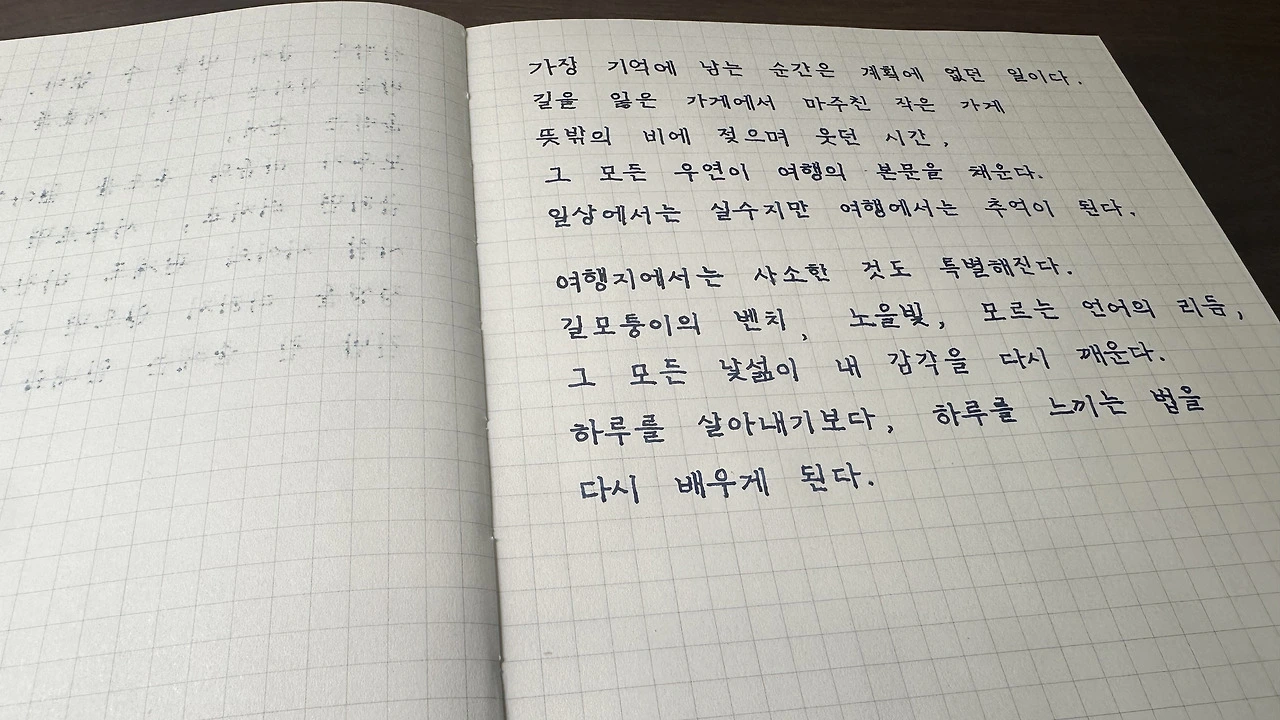 가장 기억에 남는 순간은 계획에 없던 일이다.
길을 잃은 가게에서 마주친 작은 가게
뜻밖의 비에 젖으며 웃던 시간,
그 모든 우연이 여행의 본문을 채운다.
일상에서는 실수지만 여행에서는 추억이 된다.
여행지에서는 사소한 것도 특별해진다.
길모퉁이의 벤치, 노을빛, 모르는 언어의 리듬,
그 모든 낯섦이 내 감각을 다시 깨운다.
하루를 살아내기보다, 하루를 느끼는 법을
다시 배우게 된다.